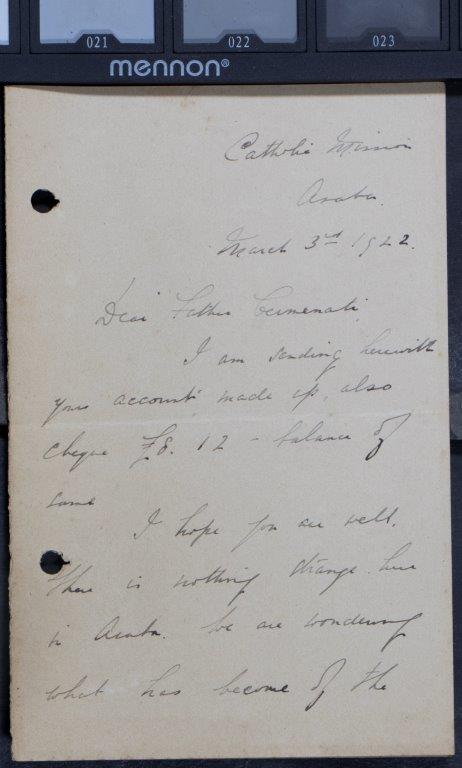 021
022
023
mennon®
Catholic Mission
Asaba.
March 3rd 1922.
Dear Father Cermenati
I am sending herewith
your account made up, also
cheque £8. 12 – balance of
same
I hope you are well.
There is nothing strange here
in Asaba. We are wondering
what has become of the